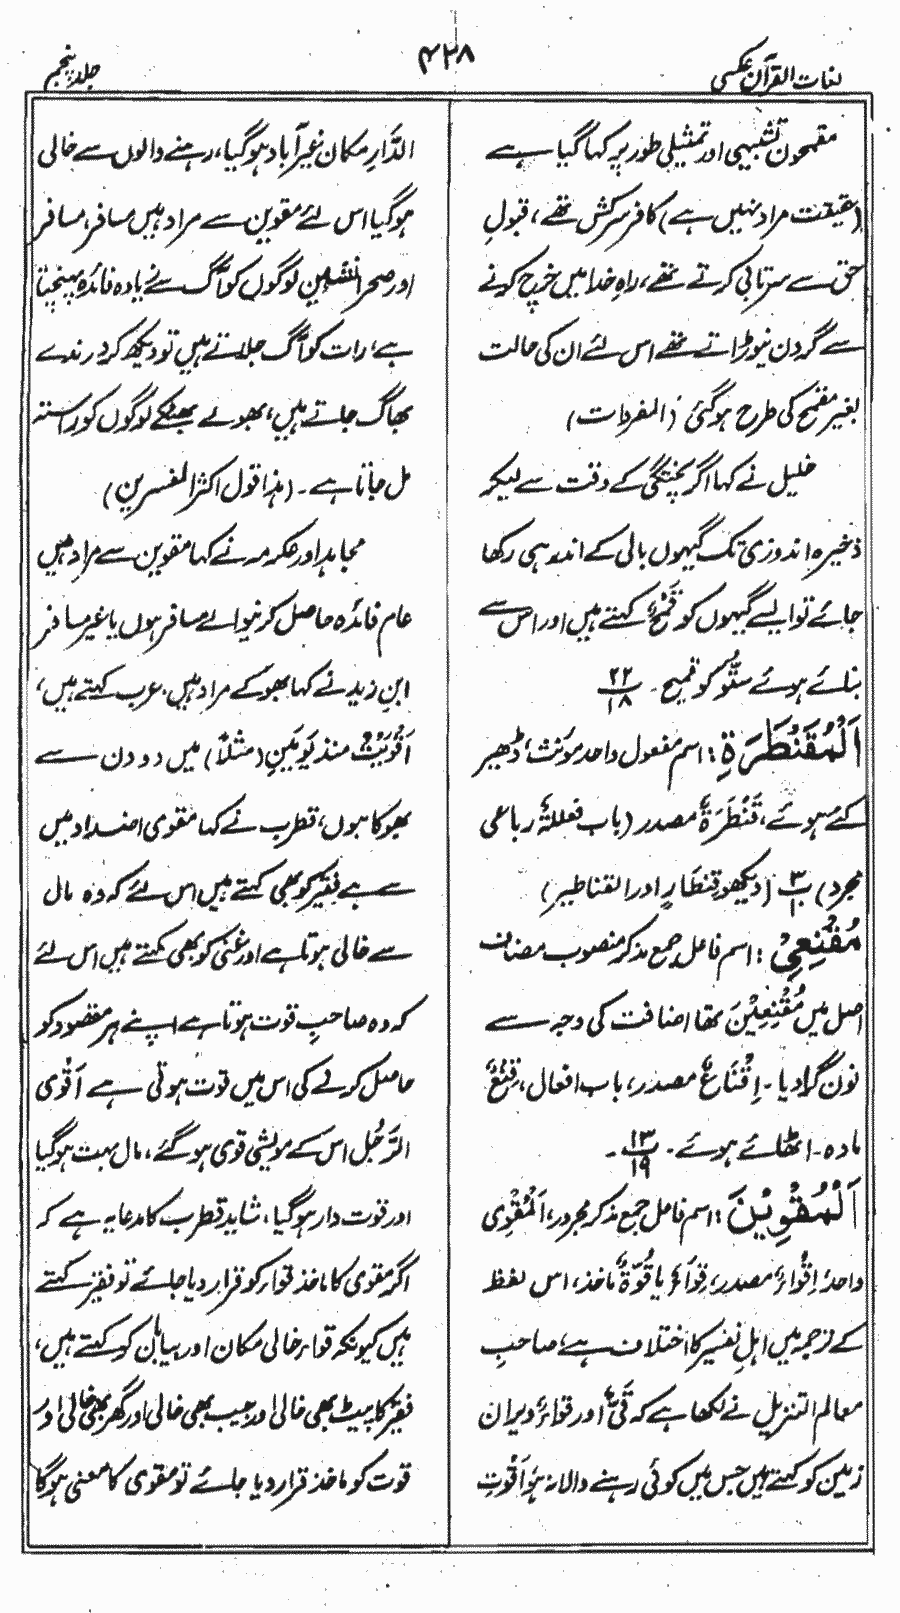 لغات القرآن عکسی
۴۲۸
جلد پنجم
مقمحون تشبیہی اور تمثیلی طور پر کہا گیا ہے
(حقیقت مراد نہیں ہے) کافر سرکش تھے، قبولِ
حق سے سرتابی کرتے تھے، راہِ خدا میں خرچ کرنے
سے گردن نیوڑاتے تھے اس لئے ان کی حالت
بغیر مقمح کی طرح ہوگئی (المفردات)
خلیل نے کہا اگر پختگی کے وقت سے لیکر
ذخیرہ اندوزی تک گیہوں بالی کے اندر ہی رکھا
جائے تو ایسے گیہوں کو قَمْحٌ کہتے ہیں اور اس سے
بنائے ہوئے ستّو کو قمیح۔ ۲۲/۱۸
اَلْمُقَنْطَرَةِ: اسم مفعول واحد مؤنث، ڈھیر
کئے ہوئے، قَنْطَرَةٌ مصدر (باب فعللۃ رباعی
مجرد) ۳/۱ (دیکھو قِنطَارٍ اور القناطیر)
مُقْنِعِیْ: اسم فاعل جمع مذکر منصوب مضاف
اصل میں مُقْنِعِیْنَ تھا اضافت کی وجہ سے
نون گرا دیا۔ اِقْنَاعٌ مصدر، باب افعال، قنعٌ
مادہ۔ اٹھائے ہوئے۔ ۱۳/۱۹۔
اَلْمُقْوِیْنَ: اسم فاعل جمع مذکر مجرور، اَلْمُقْوِی
واحد، اِقْوَاءٌ مصدر، قِوَاءٌ یا قُوَّةٌ ماخذ، اس لفظ
کے ترجمہ میں اہلِ تفسیر کا اختلاف ہے، صاحبِ
معالم التنزیل نے لکھا ہے کہ قَیٌّ اور قواء ویران
زمین کو کہتے ہیں جس میں کوئی رہنے والا نہ ہو اَقْوَتِ
الدَّارِ مکان غیر آباد ہوگیا، رہنے والوں سے خالی
ہوگیا اس لئے مقوین سے مراد ہیں مسافر، مسافر
اور صحرا نشین لوگوں کو آگ سے زیادہ فائدہ پہنچتا
ہے، رات کو آگ جلاتے ہیں تو دیکھ کر درندے
بھاگ جاتے ہیں، بھولے بھٹکے لوگوں کو راستہ
مل جاتا ہے۔ (ہذا قول اکثر المفسرین)
مجاہد اور عکرمہ نے کہا مقوین سے مراد ہیں
عام فائدہ حاصل کرنیوالے مسافر ہوں یا غیر مسافر
ابن زید نے کہا بھوکے مراد ہیں، عرب کہتے ہیں،
اَقْوَیْتُ منذ یَومَینِ (مثلاً) میں دو دن سے
بھوکا ہوں، قطرب نے کہا مقوی اضداد میں
سے ہے فقیر کو بھی کہتے ہیں اس لئے کہ وہ مال
سے خالی ہوتا ہے اور غنی کو بھی کہتے ہیں اس لئے
کہ وہ صاحبِ قوت ہوتا ہے اپنے ہر مقصود کو
حاصل کرنے کی اس میں قوت ہوتی ہے اَقْوی
الرَّجُل اس کے مویشی قوی ہوگئے، مال بہت ہوگیا
اور قوت دار ہوگیا، شاید قطرب کا مدعا یہ ہے کہ
اگر مقوی کا ماخذ قواء کو قرار دیا جائے تو فقیر کہتے
ہیں کیونکہ قواء خالی مکان اور بیابان کو کہتے ہیں،
فقیر کا پیٹ بھی خالی اور جیب بھی خالی اور گھر بھی خالی اور
قوت کو ماخذ قرار دیا جائے تو مقوی کا معنی ہوگا